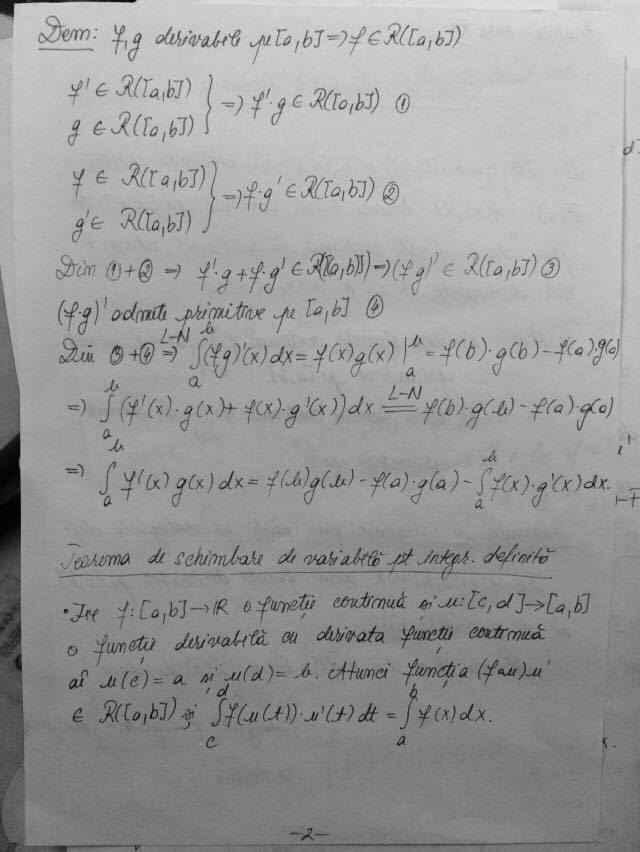 Dem: f, g derivabile pe [a,b] => f ∈ R([a,b])
f' ∈ R([a,b])
g ∈ R([a,b]) } => f'·g ∈ R([a,b]) ①
f ∈ R([a,b])
g' ∈ R([a,b]) } => f·g' ∈ R([a,b]) ②
Din ①+② => f'·g + f·g' ∈ R([a,b]) => (fg)' ∈ R([a,b]) ③
(f·g)' admite primitive pe [a,b] ④
Din ③+④ =>^{L-N} ∫_a^b (fg)'(x) dx = f(x)g(x) |_a^b = f(b)·g(b) - f(a)·g(a)
=> ∫_a^b (f'(x)·g(x) + f(x)·g'(x)) dx =^{L-N} f(b)·g(b) - f(a)·g(a)
=> ∫_a^b f'(x) g(x) dx = f(b)g(b) - f(a)·g(a) - ∫_a^b f(x)·g'(x) dx.
Teorema de schimbare de variabilă pt integr. definită
• Fie f: [a,b] → R o funcție continuă și u: [c,d] → [a,b]
o funcție derivabilă cu derivata funcție continuă
aî u(c) = a și u(d) = b. Atunci funcția (fou)u'
∈ R([a,b]) și ∫_c^d f(u(t))·u'(t) dt = ∫_a^b f(x) dx.
-2-